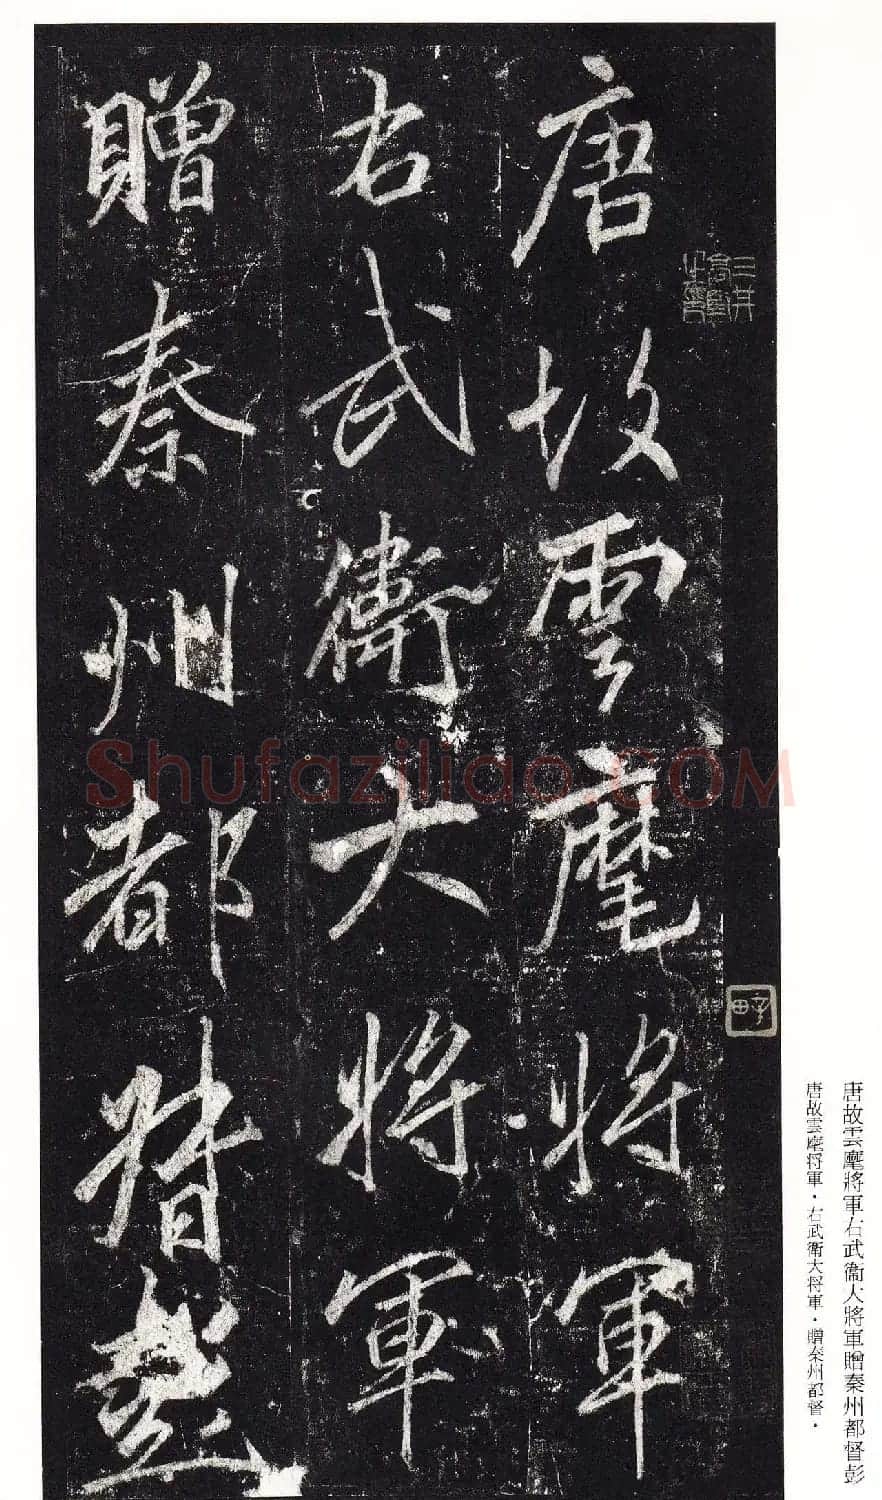 唐故雲麾將軍
右武衛大將軍
贈秦州都督彭
三井
唐故雲麾將軍右武衞大將軍贈秦州都督彭
唐故雲麾将軍・右武衛大将軍・贈秦州都督・
Shufaziliao.COM